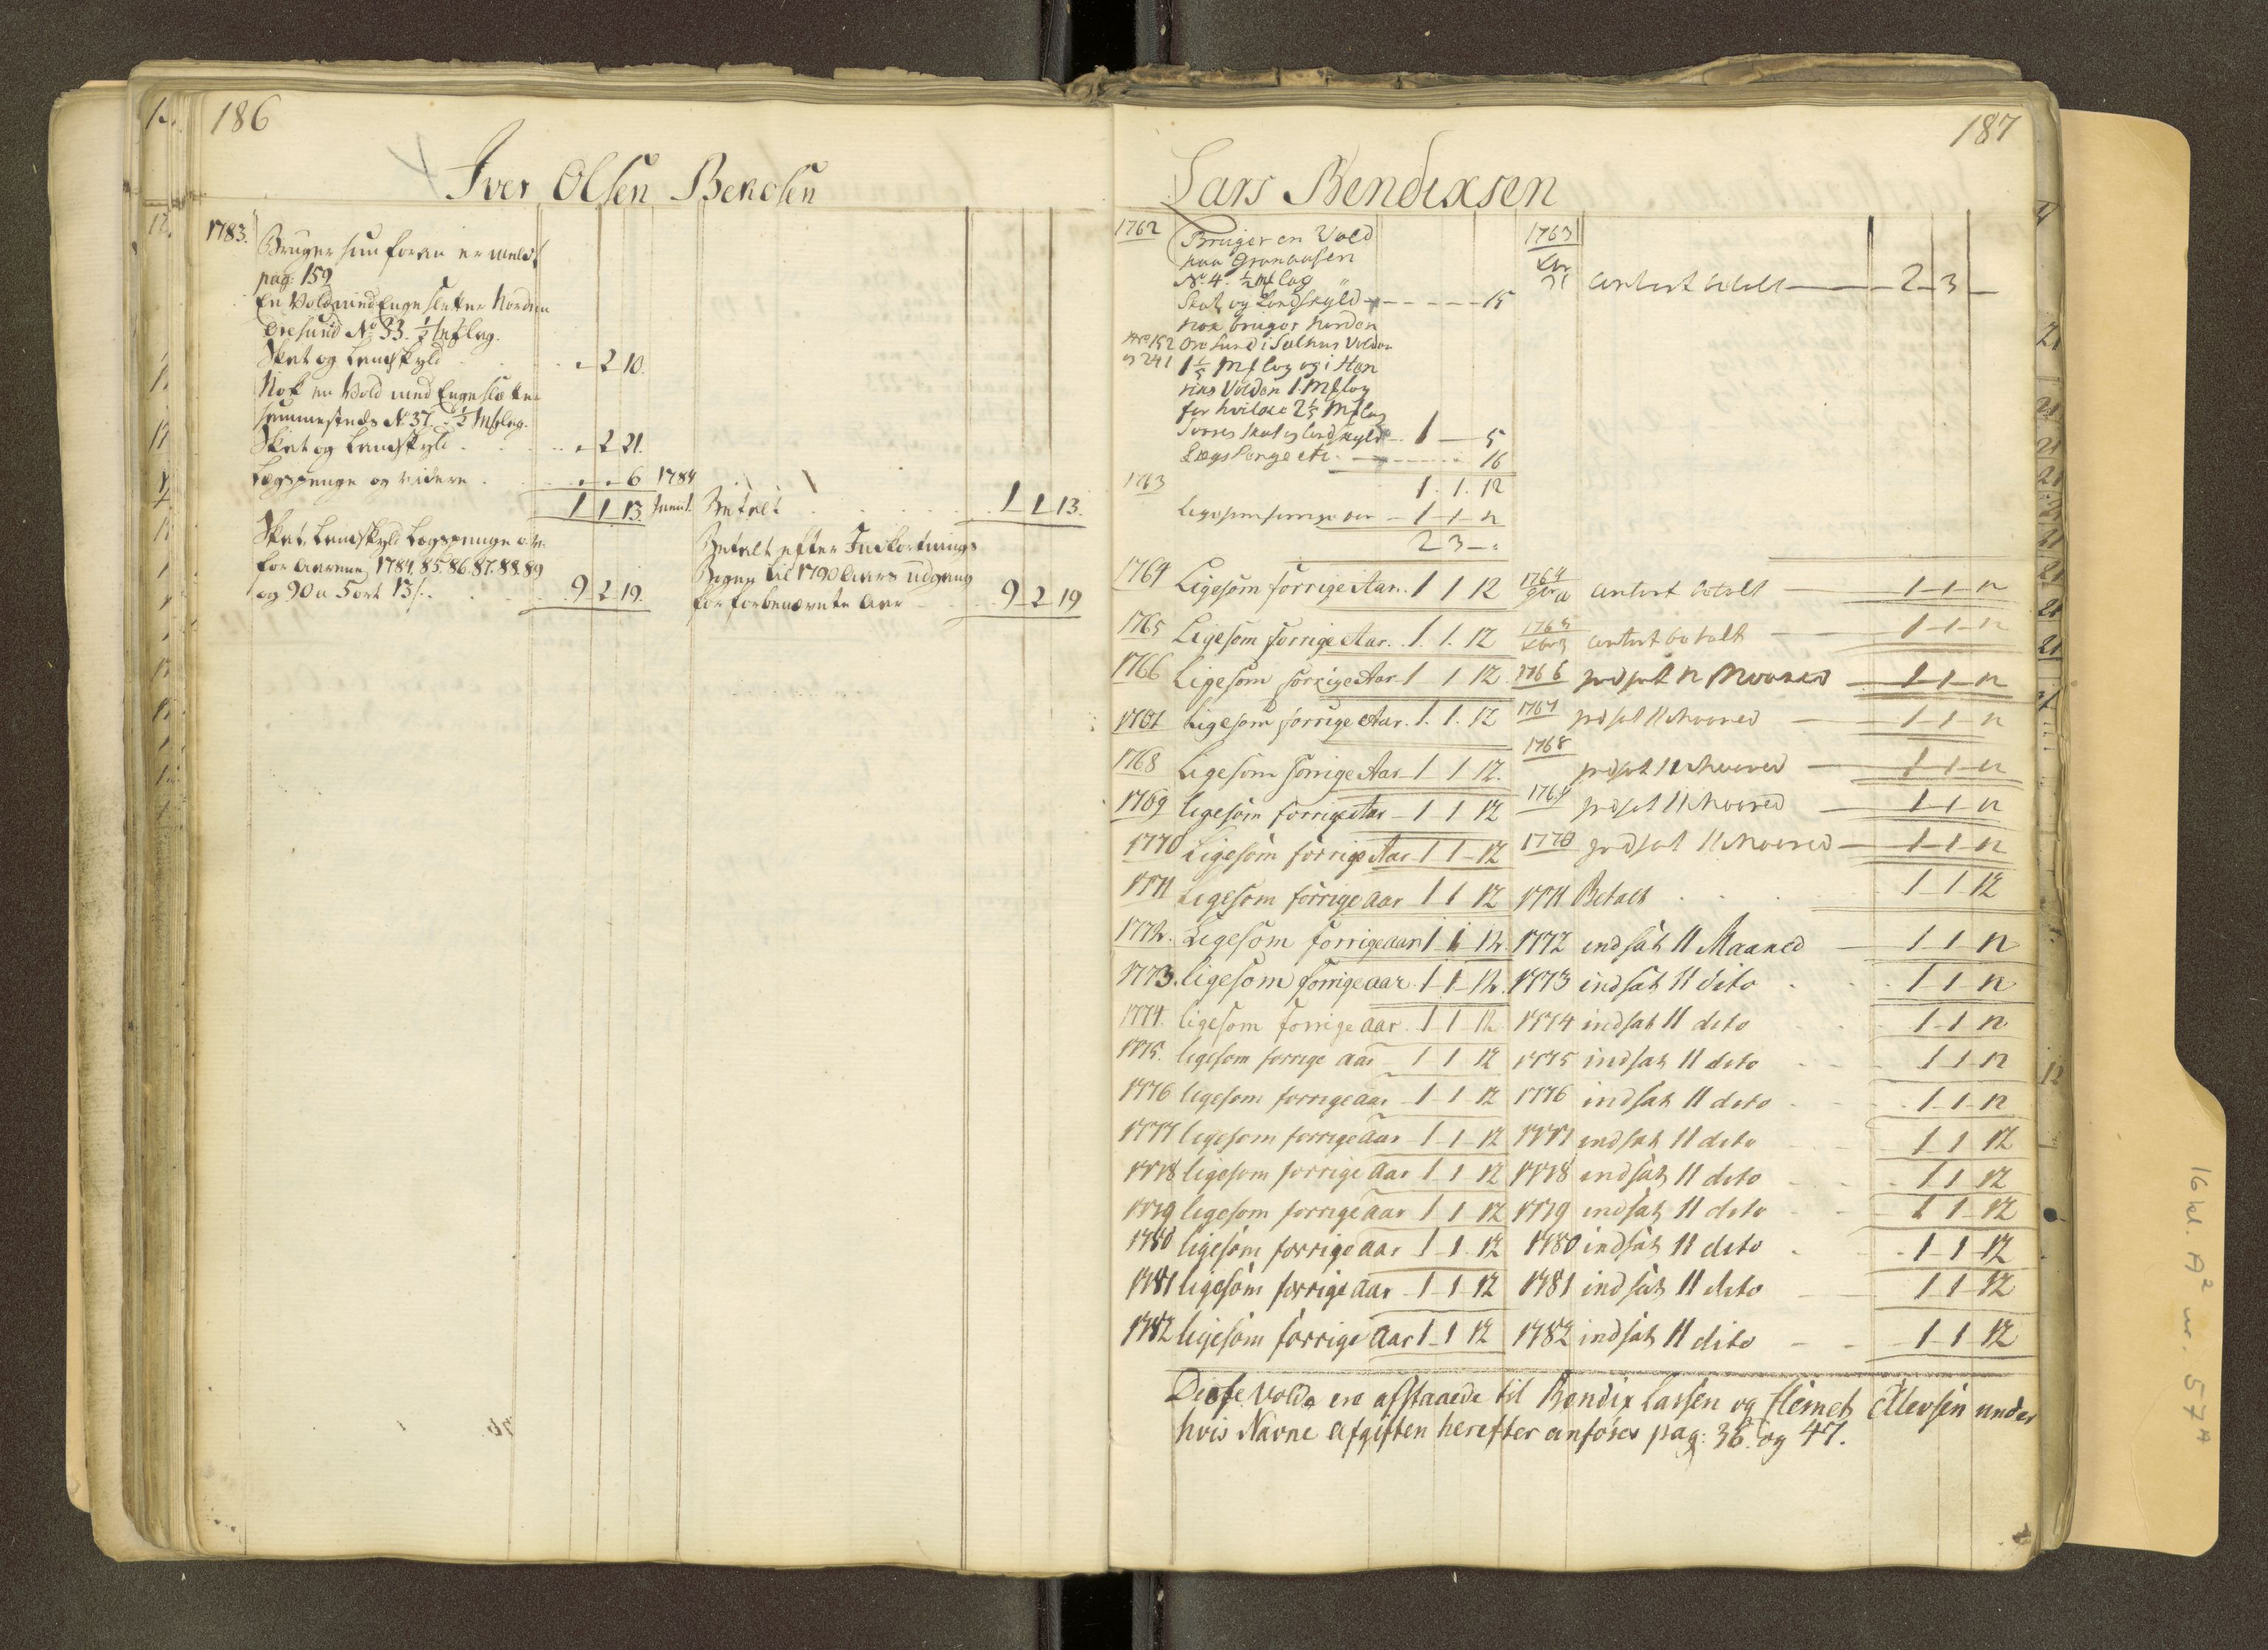 186
Iver Olsen Bendsen
1783. Bruger som foran er meldt
pag: 159
En Vold med Enge sletter Norden
Øresund No 33. ½ Mflag.
Skat og Landskyld . . . 2 10.
Nok en Vold med Enge slette
sammesteds No 37. ½ Mflag.
Skat og Landskyld . . . 2 21.
Lægspenge og videre . . . 6
1 1 13.
1784 Betalt . . . 1 1 13.
Skat, Landskyld Lægspenge etc.
for Aarene 1784. 85. 86. 87. 88. 89
og 90 a 5 ort 13 s. . . 9 2 19.
Betalt efter Indfortnings
Bogen til 1790 Aars udgang
for forbenævnte Aar 9 2 19
187
Lars Bendixsen
1762 Bruger en Vold
paa
No 4. ½ Mf lag
Skat og Landskyld - - - - - 15
nok bruger norden
152 Øre Sund i Volden
og 241 1 1/5 Mf lag og i Hen
riks Volden 1 Mf lag
for hvilke 2 1/5 Mf lag
Svares Skat og landskyld - 1 - 5
Lægs Penge etc. - - - 16
1. 1. 12
1763
Ligesom forrige aar - 1 - 1 - 12
2 3 -
1763 contant betalt - 2 - 3 -
1764 Ligesom forrige Aar. 1 1 12 1764 contant betalt - 1 - 1 - 12
1765 Ligesom forrige Aar. 1. 1. 12 1765 contant betalt - 1 - 1 - 12
1766 Ligesom forrige Aar 1 1 12. 1766 indsat 11 Maaned - 1 - 1 - 12
1767 Ligesom forrige Aar. 1. 1. 12 1767 indsat 11 Maaned - 1 - 1 - 12
1768 Ligesom forrige Aar - 1 1 12. 1768 indsat 11 Maaned - 1 - 1 - 12
1769 ligesom forrige Aar - 1 1 12 1769 indsat 11 Maaned - 1 - 1 - 12
1770 Ligesom forrige Aar 1 1 - 12 1770 indsat 11 Maaned - 1 - 1 - 12
1771 Ligesom forrige aar 1 1 12 1771 Betalt . . . 1 1 12
1772. Ligesom forrige aar 1 1 12. 1772 indsat 11 Maaned - 1 1 12
1773. ligesom forrige aar. 1 1 - 12. 1773 indsat 11 dito . . 1 1 12
1774. ligesom forrige aar. 1 1 12. 1774 indsat 11 dito 1 - 1 12
1775. ligesom forrige aar 1 1 12 1775 indsat 11 dito - - 1 1 - 12
1776 ligesom forrige aar - 1 - 1 - 12 1776 indsat 11 dito - - 1 - 1 - 12
1777 ligesom forrige aar - 1 - 1 - 12 1777 indsat 11 dito 1 1 12
1778 ligesom forrige aar 1 - 1 12 1778 indsat 11 dito - - 1 1 12
1779 ligesom forrige aar 1 1 12 1779 indsat 11 dito - - 1 1 - 12
1780 ligesom forrige aar 1 - 1. 12 1780 indsat 11 dito . - 1 - 1 - 12
1781 ligesom forrige aar - 1 1 - 12 1781 indsat 11 dito - - 1 1 - 12
1782 ligesom forrige aar 1 - 1 12 1782 indsat 11 dito - - 1 1 12
Disse Volde ere afstaaede til Bendix Lassen og Clemet Ellevsen under
hvis Navne Afgiften herefter anføres pag: 36. og 47.
16 kl. A² nr. 57 A